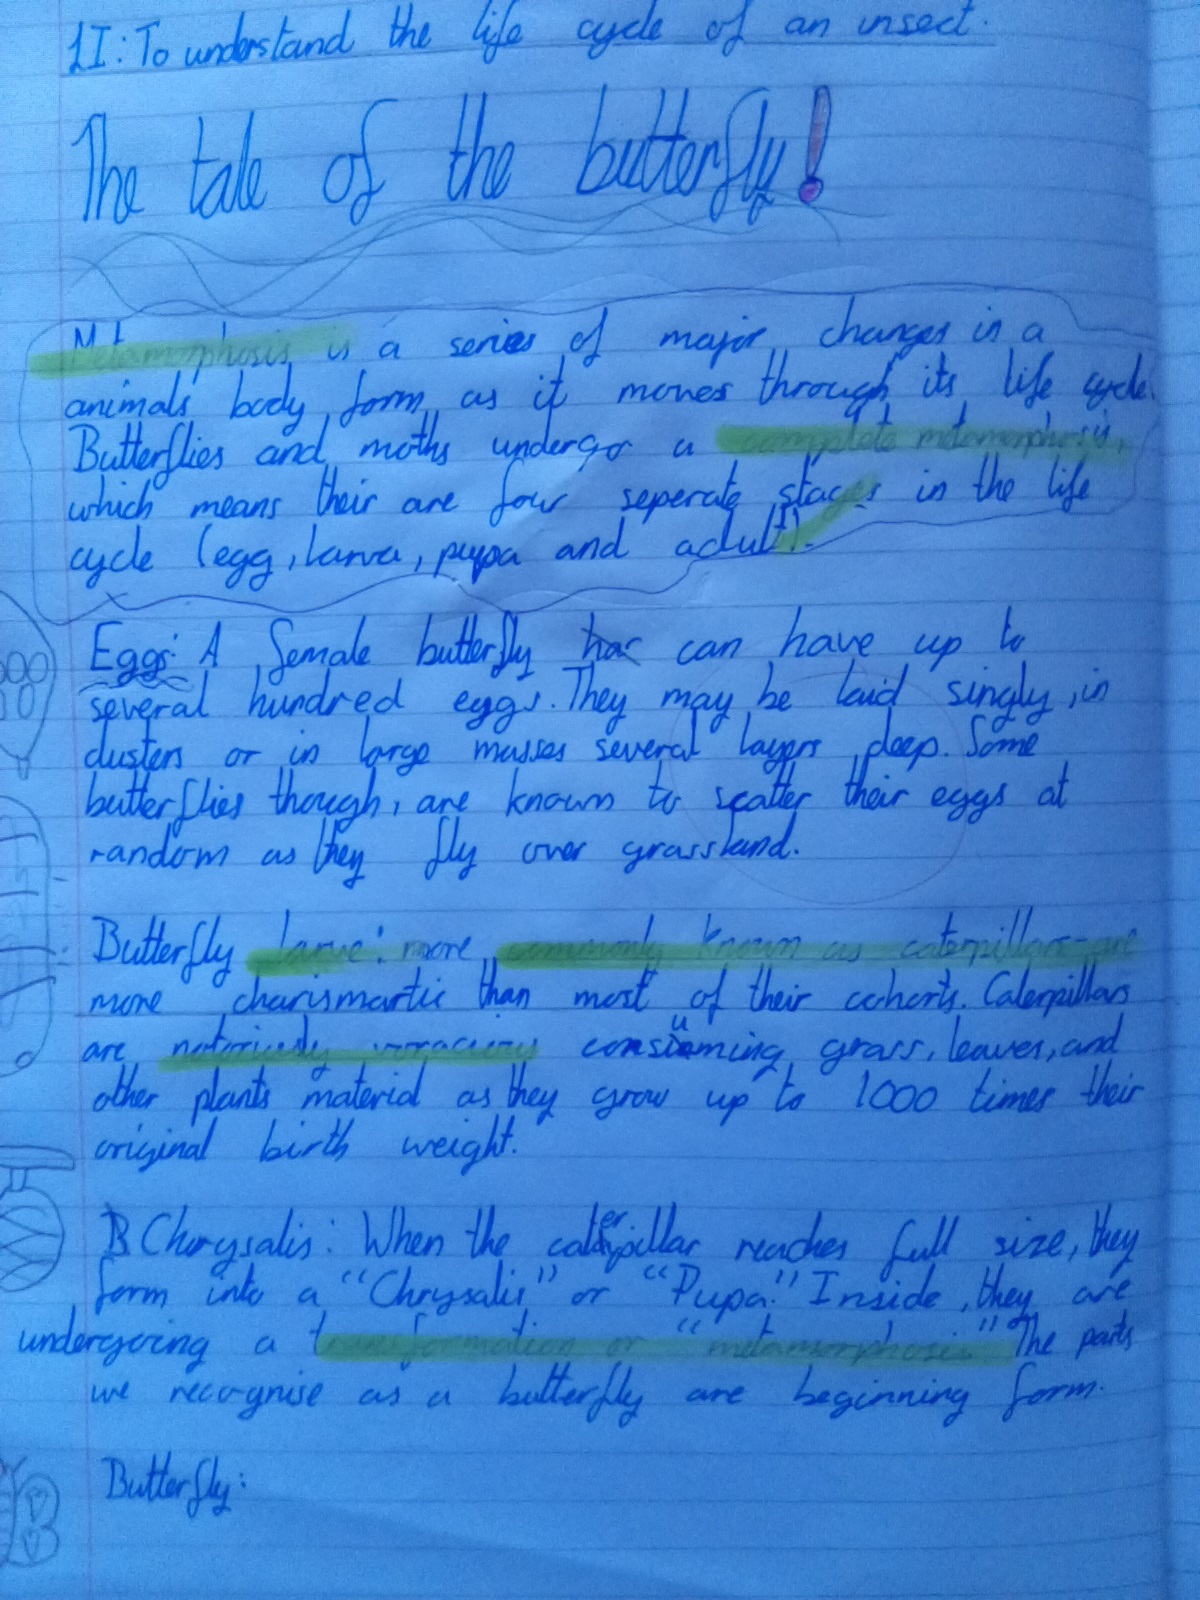 LI: To understand the life cycle of an insect.
The tale of the butterfly!
Metamorphosis is a series of major changes in a
animals body form as it moves through its life cycle.
Butterflies and moths undergo a complete metamorphosis,
which means their are four seperate stages in the life
cycle (egg, larva, pupa and adult).
Eggs: A female butterfly has can have up to
several hundred eggs. They may be laid singly, in
clusters or in large masses several layers deep. Some
butterflies though, are known to scatter their eggs at
random as they fly over grassland.
Butterfly larve: more commonly known as caterpillars-are
more charismartic than most of their cohorts. Caterpillars
are notoriusly voraciory consuming grass, leaves, and
other plants material as they grow up to 1000 times their
original birth weight.
B Chrysalis: When the caterpillar reaches full size, they
form into a "Chrysalis" or "Pupa." Inside, they are
undergoing a transformation or "metamorphosis" The parts
we recognise as a butterfly are beginning form.
Butterfly: